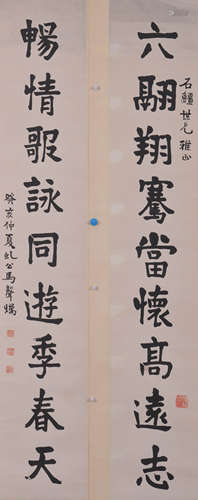 石世兄雅正
六翮翔騫當懷高遠志
暢情歌詠同遊季春天
癸亥仲夏虬公馬